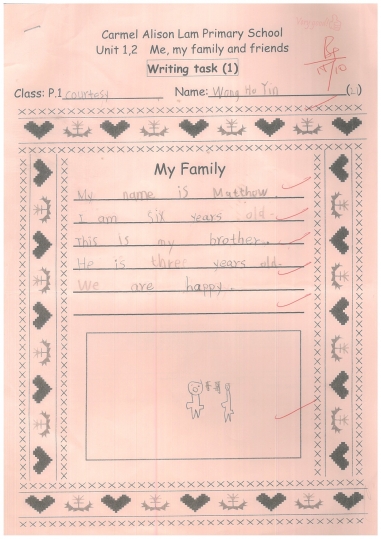 Carmel Alison Lam Primary School
Unit 1,2 Me, my family and friends
Writing task (1)
Class: P.1 courtesy Name: Wong Ho Yin
My Family
My name is Matthow.
I am six years old.
This is my brother.
He is three years old.
We are happy.